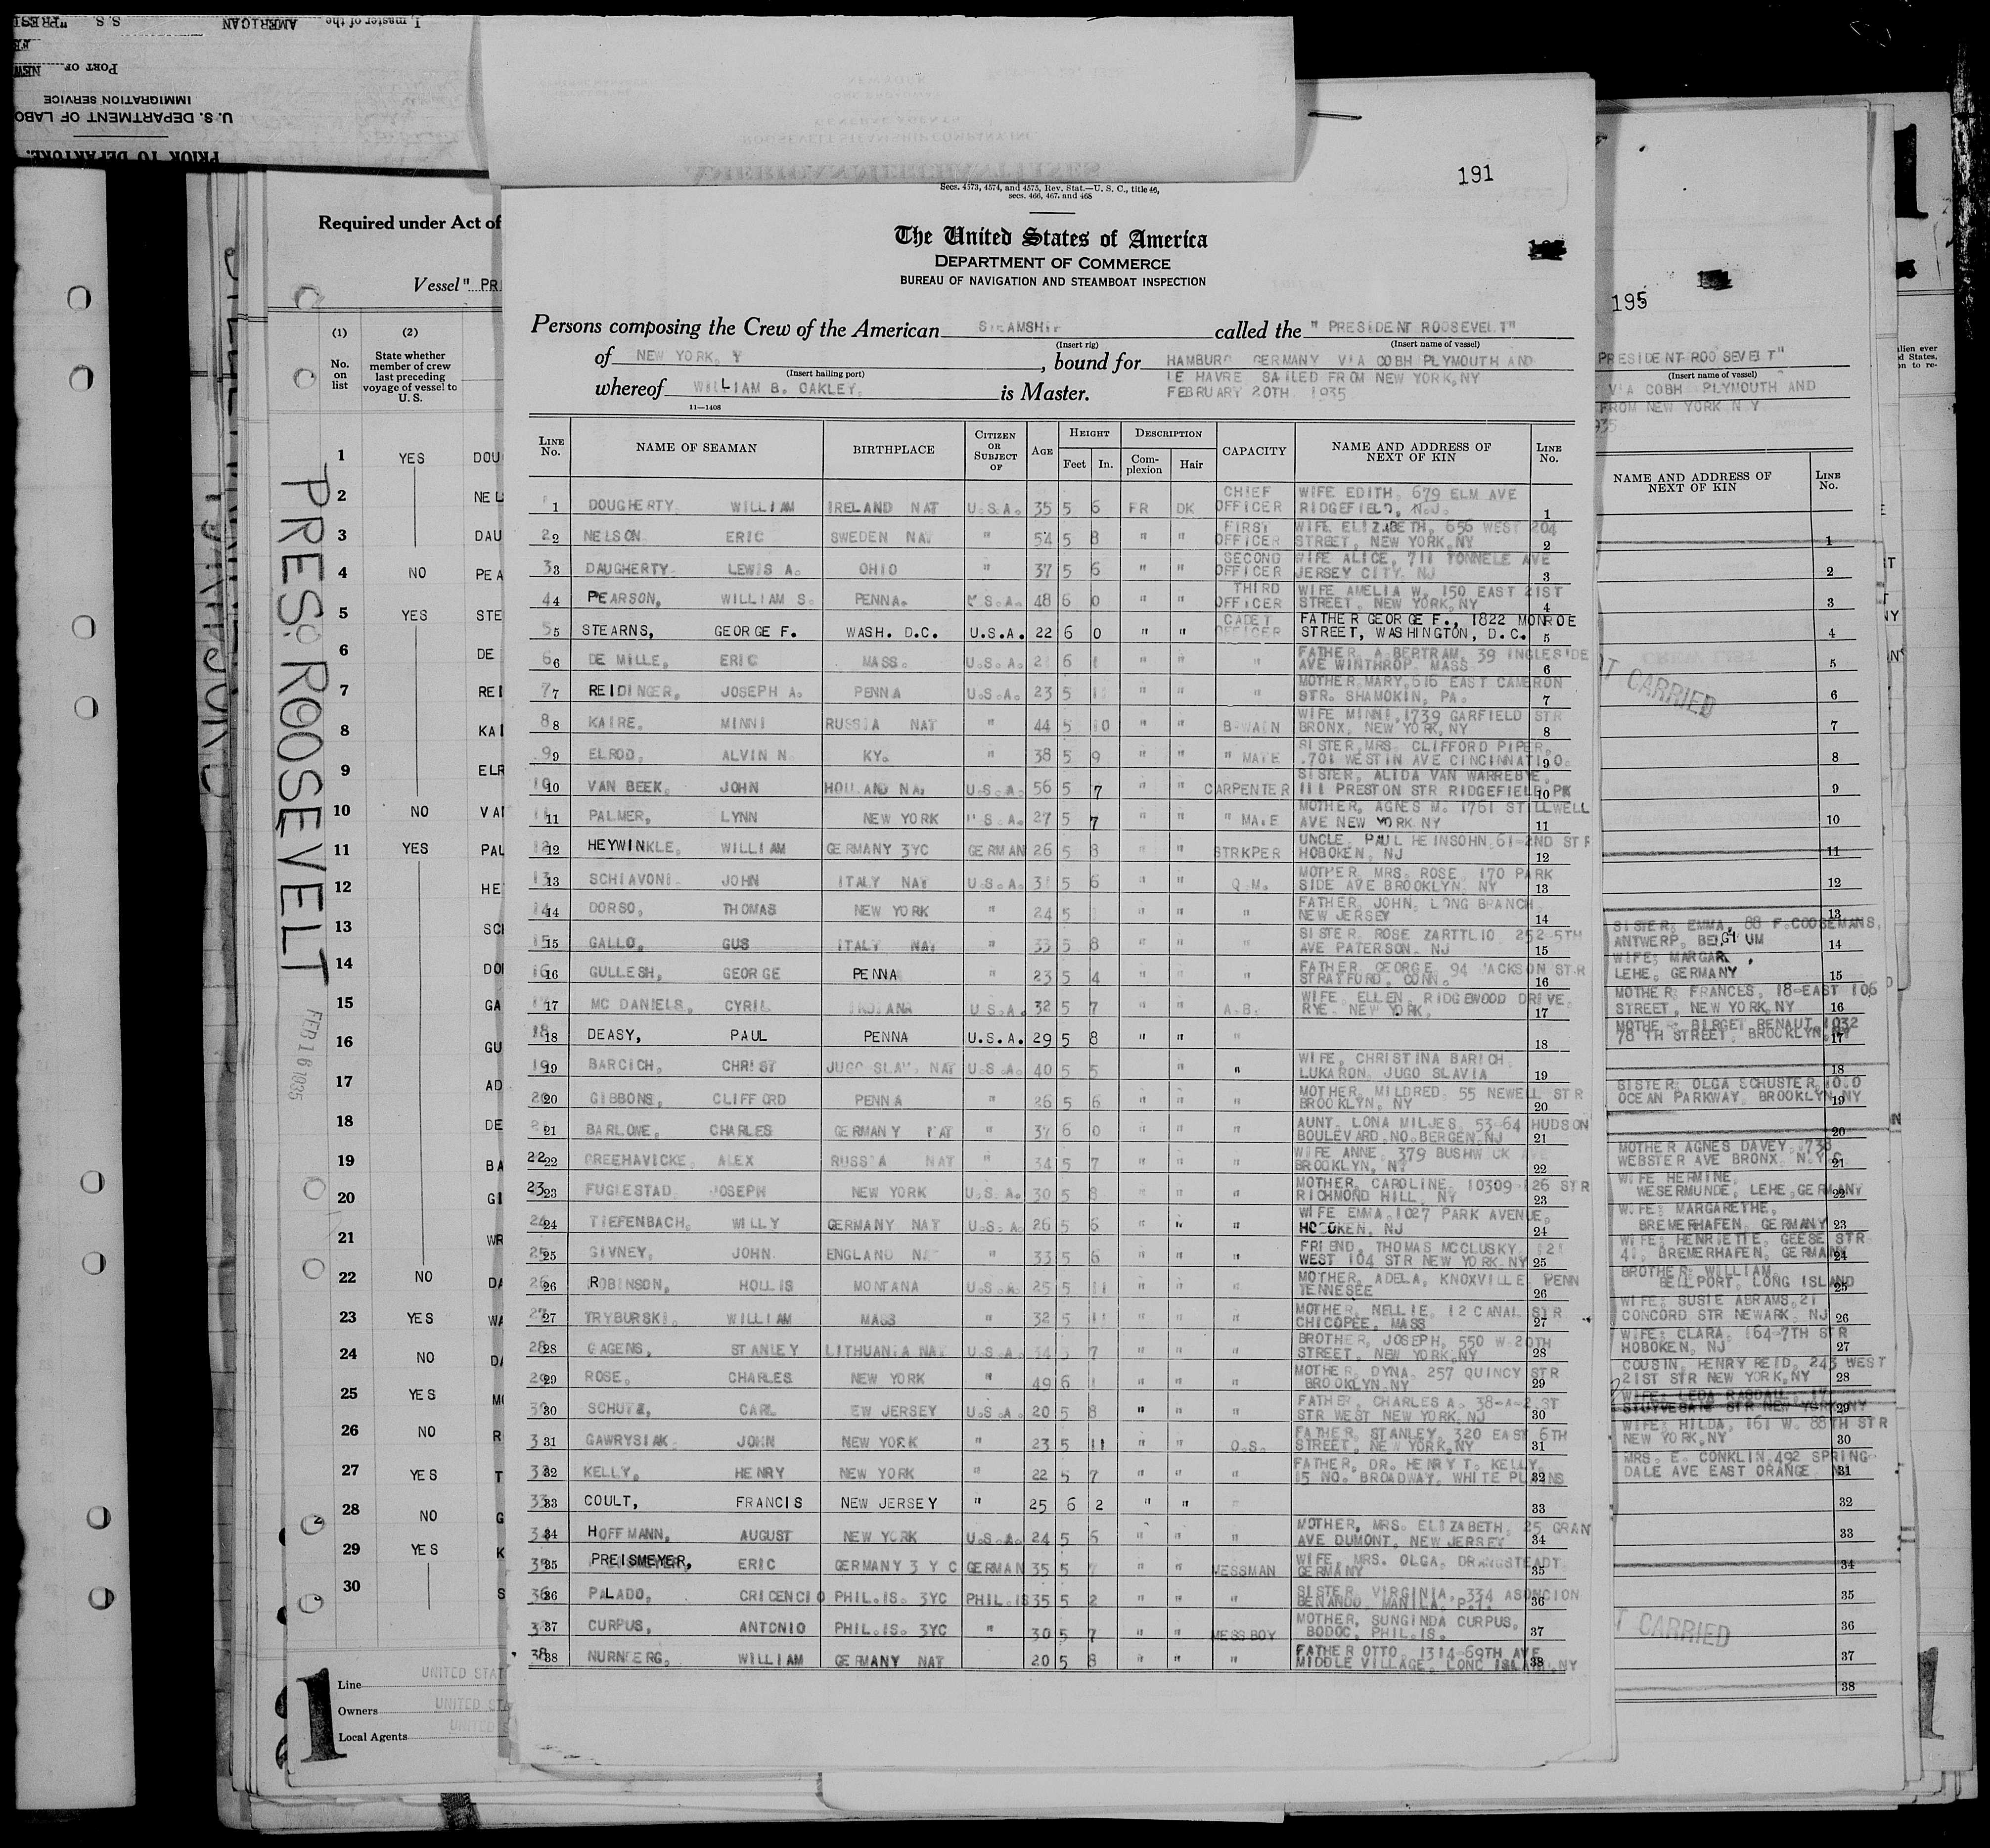 I, master of the AMERICAN S.S. "PRESI
PORT OF NEW
IMMIGRATION SERVICE
U.S. DEPARTMENT OF LABO
PRIOR TO DEPARTURE.
Required under Act of
Vessel "PR
(1) (2)
No. on list
State whether member of crew last preceding voyage of vessel to U. S.
1 YES DOU
2 NEL
3 DAU
4 NO PEA
5 YES STE
6 DE
7 REI
8 KAI
9 ELR
10 NO VAI
11 YES PAL
12 HE
13 SCI
14 DOI
15 GA
16 GU
17 AD
18 DE
19 BA
20 GI
21 WR
22 NO DA
23 YES WA
24 NO DA
25 YES MO
26 NO R
27 YES T
28 NO G
29 YES K
30 S
PRES. ROOSEVELT
FEB 16 1935
1
Line UNITED STAT
Owners UNITED STA
Local Agents UNITED S
191
Secs. 4573, 4574, and 4575, Rev. Stat.—U. S. C., title 46,
secs. 466, 467, and 468
The United States of America
DEPARTMENT OF COMMERCE
BUREAU OF NAVIGATION AND STEAMBOAT INSPECTION
Persons composing the Crew of the American STEAMSHIP called the "PRESIDENT ROOSEVELT"
(Insert rig) (Insert name of vessel)
of NEW YORK, Y, bound for HAMBURG GERMANY VIA COBH PLYMOUTH AND
(Insert hailing port) LE HAVRE SAILED FROM NEW YORK, NY
whereof WILLIAM B. OAKLEY, is Master. FEBRUARY 20TH 1935
11—1408
LINE No. NAME OF SEAMAN BIRTHPLACE CITIZEN OR SUBJECT OF AGE HEIGHT Feet In. DESCRIPTION Complexion Hair CAPACITY NAME AND ADDRESS OF NEXT OF KIN LINE No.
1 DOUGHERTY WILLIAM IRELAND NAT U.S.A. 35 5 6 FR DK CHIEF OFFICER WIFE EDITH, 679 ELM AVE RIDGEFIELD, N.J. 1
2 NELSON ERIC SWEDEN NAT " 54 5 8 " " FIRST OFFICER WIFE ELIZABETH, 656 WEST 204 STREET, NEW YORK, NY 2
3 DAUGHERTY LEWIS A. OHIO " 37 5 6 " " SECOND OFFICER WIFE ALICE, 711 TONNELE AVE JERSEY CITY, NJ 3
4 PEARSON, WILLIAM S. PENNA. U.S.A. 48 6 0 " " THIRD OFFICER WIFE AMELIA W, 150 EAST 21ST STREET, NEW YORK, NY 4
5 STEARNS, GEORGE F. WASH. D.C. U.S.A. 22 6 0 " " CADET OFFICER FATHER GEORGE F., 1822 MONROE STREET, WASHINGTON, D.C. 5
6 DE MILLE, ERIC MASS. U.S.A. 6 1 " " " FATHER, A BERTRAM, 39 INGLESIDE AVE WINTHROP, MASS 6
7 REIDINGER, JOSEPH A. PENNA U.S.A. 23 5 " " " MOTHER, MARY, 616 EAST CAMERON STR. SHAMOKIN, PA. 7
8 KAIRE, MINNI RUSSIA NAT " 44 5 10 " " B-WAIN WIFE MINNI, 1739 GARFIELD STR BRONX, NEW YORK, NY 8
9 ELROD, ALVIN N. KY. " 38 5 9 " " " MATE SISTER, MRS. CLIFFORD PIPER, 701 WESTIN AVE CINCINNATI O. 9
10 VAN BEEK, JOHN HOLLAND NAT U.S.A. 56 5 7 " " CARPENTER SISTER, ALIDA VAN WARREBYE, 111 PRESTON STR RIDGEFIELD PK 10
11 PALMER, LYNN NEW YORK U.S.A. 27 5 7 " " " MATE MOTHER, AGNES M. 1761 STILLWELL AVE NEW YORK NY 11
12 HEYWINKLE, WILLIAM GERMANY 3YC GERMAN 26 5 8 " " STRKPER UNCLE, PAUL HEINSOHN 61-2ND STR HOBOKEN, NJ 12
13 SCHIAVONI JOHN ITALY NAT U.S.A. 5 6 " " Q.M. MOTHER MRS. ROSE, 170 PARK SIDE AVE BROOKLYN, NY 13
14 DORSO, THOMAS NEW YORK " 24 5 " " " FATHER, JOHN, LONG BRANCH, NEW JERSEY 14
15 GALLO, GUS ITALY NAT " 33 5 8 " " " SISTER ROSE ZARTTLIO 252-5TH AVE PATERSON, NJ 15
16 GULLESH, GEORGE PENNA " 23 5 4 " " " FATHER, GEORGE, 94 JACKSON STR STRATFORD, CONN. 16
17 MC DANIELS, CYRIL INDIANA U.S.A. 32 5 7 " " A.B. WIFE, ELLEN, RIDGEWOOD DRIVE, RYE NEW YORK, 17
18 DEASY, PAUL PENNA U.S.A. 29 5 8 " " " 18
19 BARCICH, CHRIST JUGO SLAV. NAT U.S.A. 40 5 5 " " WIFE, CHRISTINA BARICH LUKARON, JUGO SLAVIA 19
20 GIBBONS, CLIFFORD PENNA " 26 5 6 " " " MOTHER, MILDRED, 55 NEWELL STR BROOKLYN, NY 20
21 BARLOWE, CHARLES GERMANY NAT " 37 6 0 " " " AUNT, LONA MILJES, 53-64 HUDSON BOULEVARD, NO. BERGEN, NJ 21
22 GREEHAVICKE, ALEX RUSSIA NAT " 34 5 7 " " " WIFE ANNE, 379 BUSHWICK AVE BROOKLYN, NY 22
23 FUGLESTAD JOSEPH NEW YORK U.S.A. 30 5 8 " " " MOTHER, CAROLINE, 10309-126 STR RICHMOND HILL, NY 23
24 TIEFENBACH, WILLY GERMANY NAT U.S.A. 26 5 6 " " " WIFE EMMA, 1027 PARK AVENUE, HOBOKEN, NJ 24
25 GIVNEY, JOHN ENGLAND NAT " 33 5 6 " " " FRIEND, THOMAS MCCLUSKY, 121 WEST 104 STR NEW YORK, NY 25
26 ROBINSON, HOLLIS MONTANA U.S.A. 25 5 11 " " " MOTHER, ADELA, KNOXVILLE, PENN TENNESEE 26
27 TRYBURSKI, WILLIAM MASS " 32 5 11 " " " MOTHER, NELLIE, 12 CANAL STR CHICOPEE, MASS 27
28 GAGENS, STANLEY LITHUANIA NAT U.S.A. 34 5 7 " " " BROTHER, JOSEPH, 550 W-20TH STREET, NEW YORK, NY 28
29 ROSE, CHARLES NEW YORK " 49 6 1 " " " MOTHER, DYNA, 257 QUINCY STR BROOKLYN, NY 29
30 SCHUTZ, CARL EW JERSEY U.S.A. 20 5 8 " " " FATHER, CHARLES A. STR WEST NEW YORK, NJ 30
31 GAWRYSIAK JOHN NEW YORK " 23 5 11 " " O.S. FATHER, STANLEY, 320 EAST 6TH STREET, NEW YORK, NY 31
32 KELLY, HENRY NEW YORK " 22 5 7 " " " FATHER, DR. HENRY T. KELLY, 15 NO. BROADWAY, WHITE PLAINS 32
33 COULT, FRANCIS NEW JERSEY " 25 6 2 " " " 33
34 HOFFMANN, AUGUST NEW YORK U.S.A. 24 5 5 " " " MOTHER, MRS. ELIZABETH, 25 GRAN AVE DUMONT, NEW JERSEY 34
35 PREISMEYER, ERIC GERMANY 3 Y C GERMAN 35 5 7 " " MESSMAN WIFE, MRS. OLGA, DRANGSTEADT GERMANY 35
36 PALADO, CRICENCIO PHIL.IS. 3YC PHIL.IS 35 5 2 " " " SISTER VIRGINIA, 334 ASUNCION BENANDO, MANILA, P.I. 36
37 CURPUS, ANTONIO PHIL.IS. 3YC " 30 5 7 " " MESSBOY MOTHER, SUNGINDA CURPUS, BODOC, PHIL.IS. 37
38 NURNBERG, WILLIAM GERMANY NAT 20 5 8 " " " FATHER OTTO, 1314-69TH AVE MIDDLE VILLAGE, LONG ISLAND, NY 38
195
PRESIDENT ROOSEVELT"
(Insert name of vessel)
VIA COBH PLYMOUTH AND
FROM NEW YORK N.Y
935
NAME AND ADDRESS OF NEXT OF KIN LINE No.
1
2
3
4
5
T CARRIED
6
7
8
9
10
11
12
13
SISTER; EMMA, 88 F.COOSEMANS,
ANTWERP, BELGIUM 14
WIFE; MARGAR
LEHE, GERMANY 15
MOTHER; FRANCES, 18-EAST 106
STREET, NEW YORK, NY 16
MOTHER; BIRGET RENAUT, 1032
78 TH STREET, BROOKLYN, NY 17
18
SISTER; OLGA SCHUSTER,
OCEAN PARKWAY, BROOKLYN, NY 19
20
MOTHER AGNES DAVEY, 1738
WEBSTER AVE BRONX N.Y.C 21
WIFE HERMINE,
WESERMUNDE, LEHE, GERMANY 22
WIFE; MARGARETHE,
BREMERHAFEN, GERMANY 23
WIFE; HENRIETTE, GEESE STR
41, BREMERHAFEN, GERMANY 24
BROTHER; WILLIAM,
BELLPORT, LONG ISLAND 25
WIFE; SUSIE ABRAMS, 21
CONCORD STR NEWARK, NJ 26
WIFE; CLARA, 164-7TH STR
HOBOKEN, NJ 27
COUSIN, HENRY REID, 243 WEST
21ST STR NEW YORK, NY 28
WIFE; LEDA RASDALL, 17
STUYVESANT STR NEW YORK, NY 29
WIFE; HILDA, 161 W. 88TH STR
NEW YORK, NY 30
MRS. E. CONKLIN, 492 SPRING
DALE AVE EAST ORANGE 31
32
33
34
35
T CARRIED
36
37
38
lien ever
d States,
n to re-